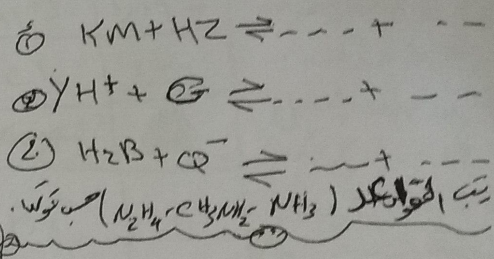 ① KM + HZ ⇌ ---- + --
② YH⁺ + G ⇌ ---- + --
② H₂B + Q⁻ ⇌ --- + ---
رتب القواعد (N₂H₄ - CH₃NH₂ - NH₃) حسب قوتها.